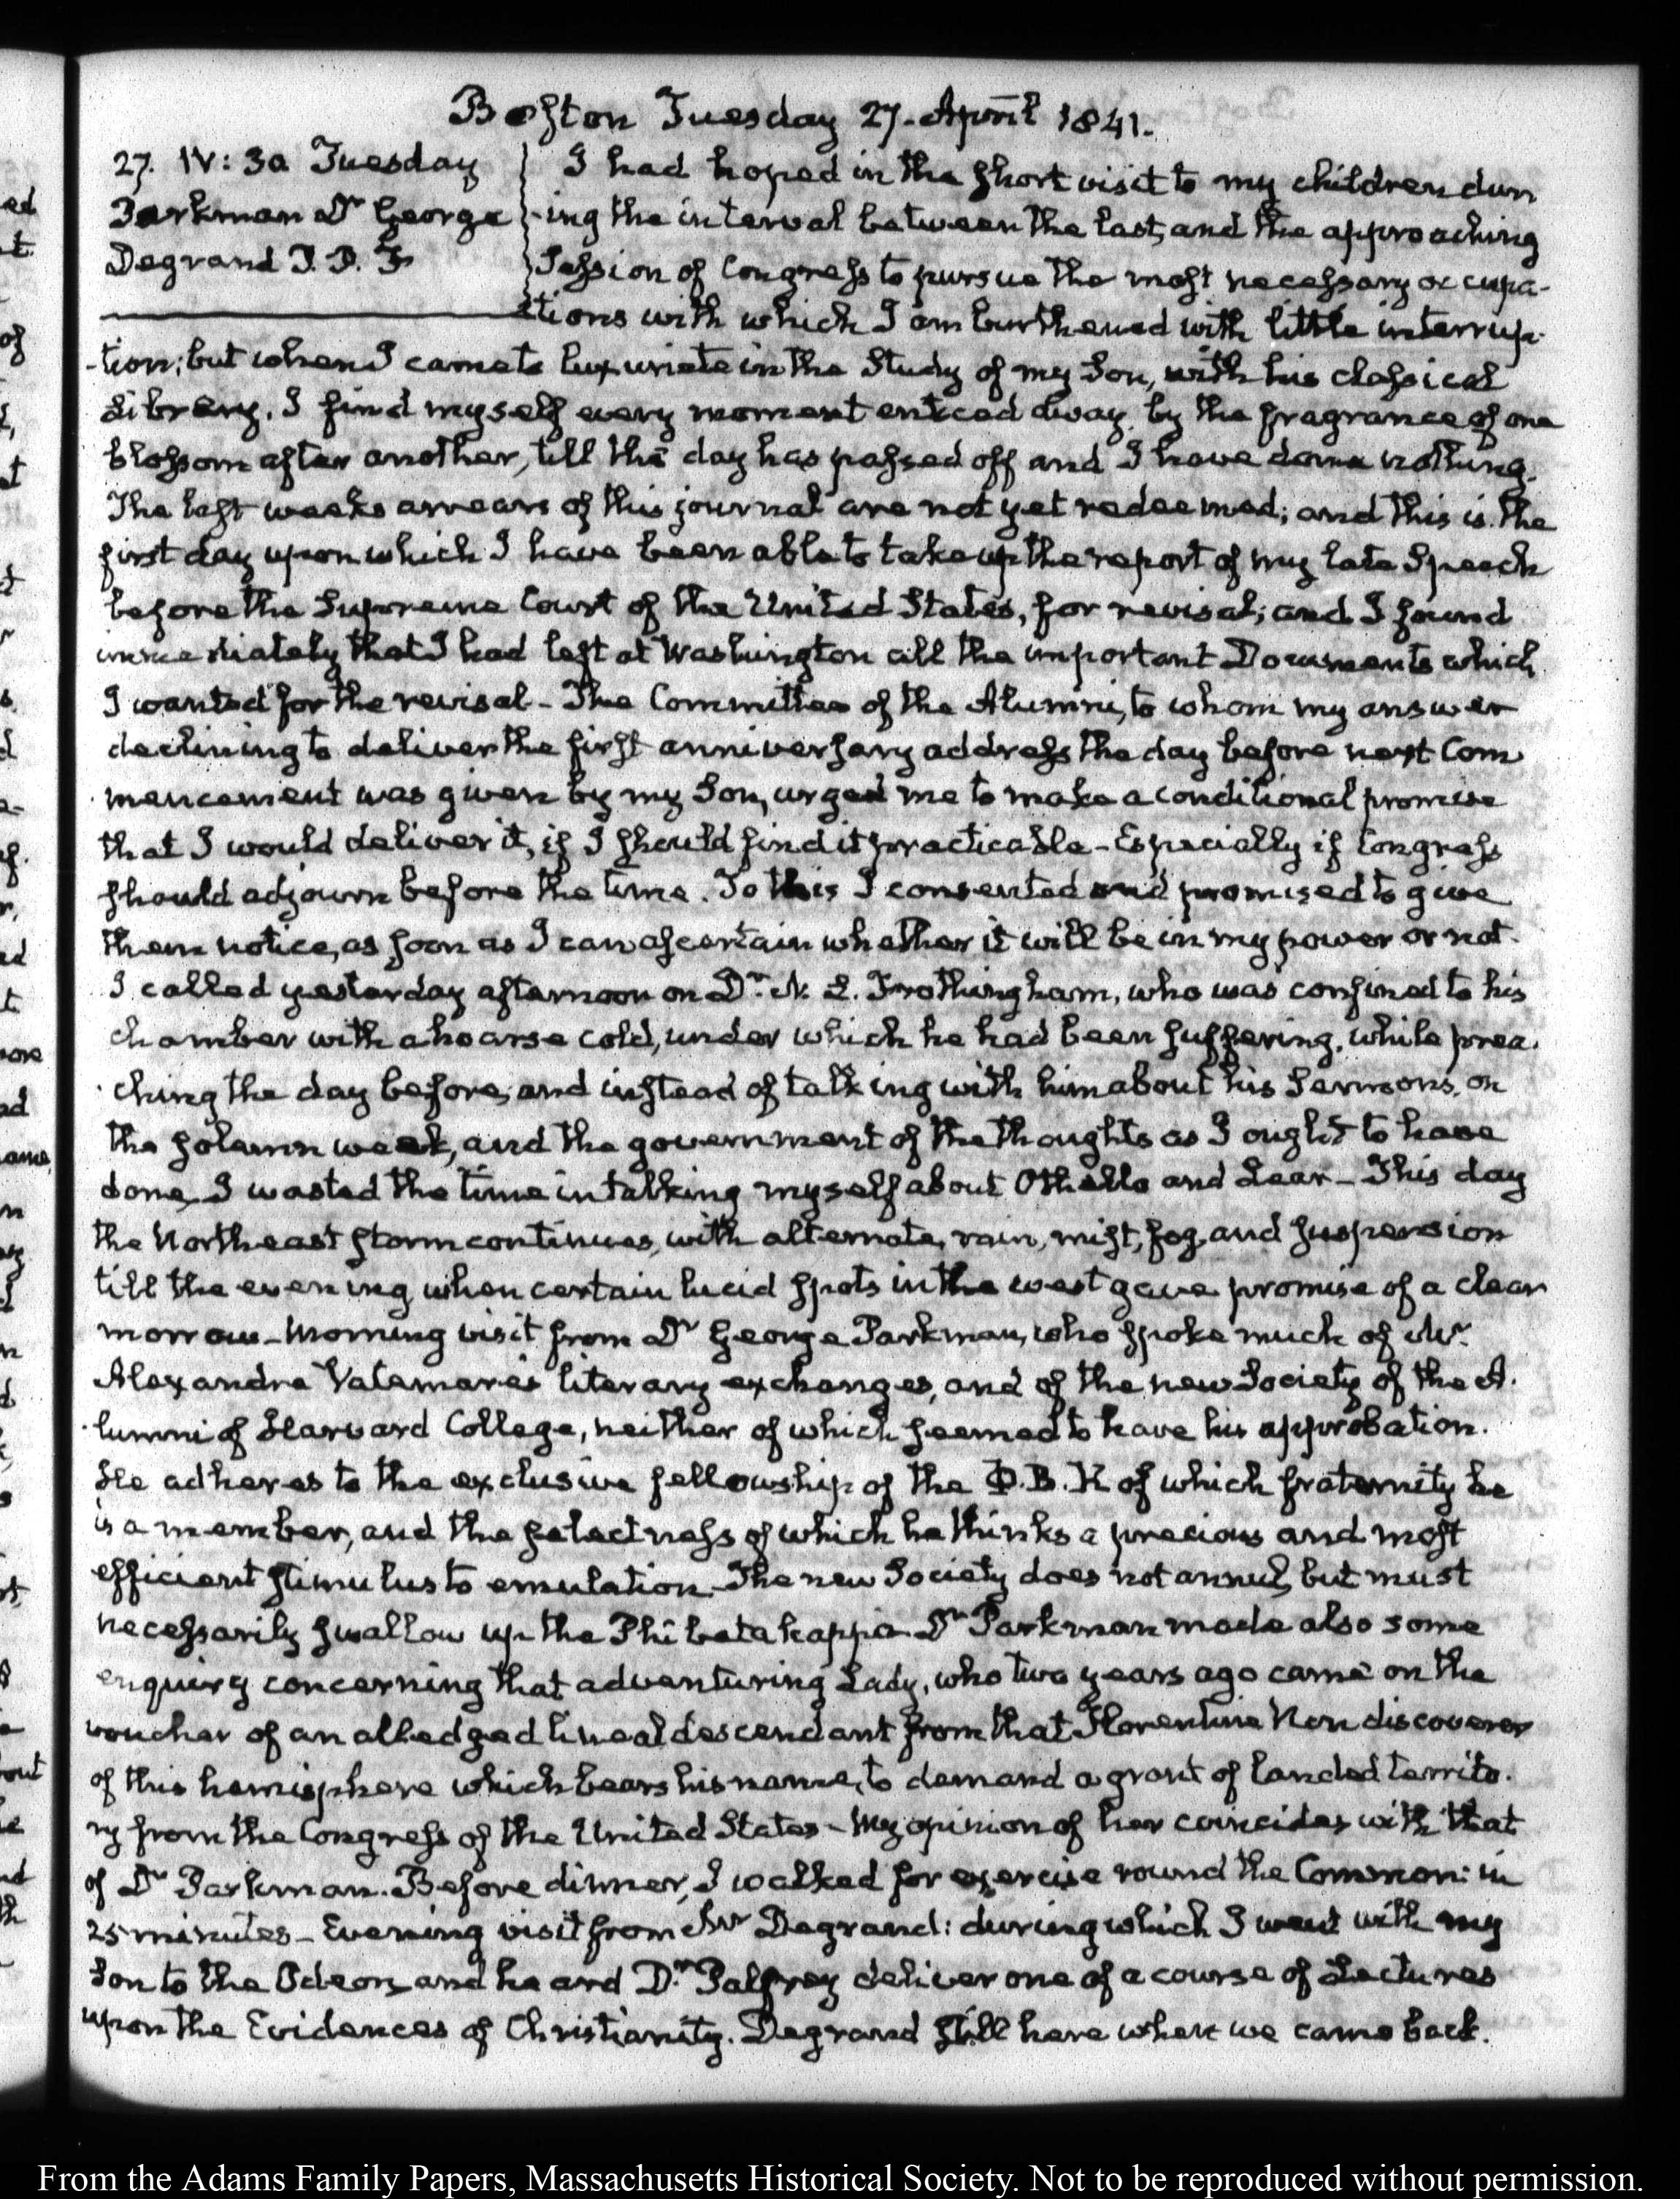 Boston Tuesday 27. April 1841.
27. IV:30 Tuesday
Parkman Dr George
Degrand P. P. F
I had hoped in the short visit to my children dur
-ing the interval between the last, and the approaching
Session of Congress to pursue the most necessary occupa-
tions with which I am burthened with little interrup-
-tion; but when I came to luxuriate in the Study of my Son, with his classical
Library, I find myself every moment enticed away by the fragrance of one
blossom after another, till the day has passed off and I have done nothing.
The last weeks arrears of this journal are not yet redeemed; and this is the
first day upon which I have been able to take up the report of my late Speech
before the Supreme Court of the United States, for revisal; and I found
immediately that I had left at Washington all the important Documents which
I wanted for the revisal - The Committee of the Alumni, to whom my answer
declining to deliver the first anniversary address the day before next Com
mencement was given by my Son, urged me to make a conditional promise
that I would deliver it, if I should find it practicable - Especially if Congress
should adjourn before the time. To this I consented and promised to give
them notice, as soon as I can ascertain whether it will be in my power or not.
I called yesterday afternoon on Dr. N. L. Frothingham, who was confined to his
chamber with a hoarse cold, under which he had been suffering, while prea-
ching the day before, and instead of talking with him about his Sermons, on
the solemn week, and the government of the thoughts as I ought to have
done, I wasted the time in talking myself about Othello and Lear - This day
the Northeast storm continues, with alternate, rain, mist, fog, and suspension
till the evening when certain lucid spots in the west gave promise of a clear
morrow - Morning visit from Dr George Parkman, who spoke much of Mr.
Alexandre Vatemare's literary exchanges, and of the new Society of the A-
lumni of Harvard College, neither of which seemed to have his approbation.
He adheres to the exclusive fellowship of the Φ.B.K of which fraternity he
is a member, and the selectness of which he thinks a precious and most
efficient stimulus to emulation. The new Society does not annul, but must
necessarily swallow up the Phi beta kappa Dr Parkman made also some
enquiry concerning that adventuring Lady, who two years ago came on the
voucher of an alledged lineal descendant from that Florentine Non discoverer
of this hemisphere which bears his name, to demand a grant of landed territo-
ry from the Congress of the United States - My opinion of her coincides with that
of Dr Parkman. Before dinner, I walked for exercise round the Common: in
25 minutes - Evening visit from Mr Degrand: during which I went with my
Son to the Odeon, and heard Dr. Palfrey deliver one of a course of Lectures
upon the Evidences of Christianity. Degrand still here when we came back.
From the Adams Family Papers, Massachusetts Historical Society. Not to be reproduced without permission.